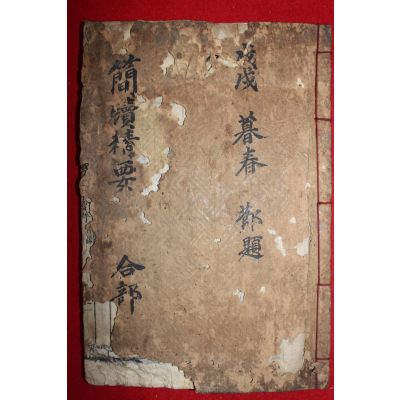 戊戌 暮春 鄭題
簡牘精要 合部